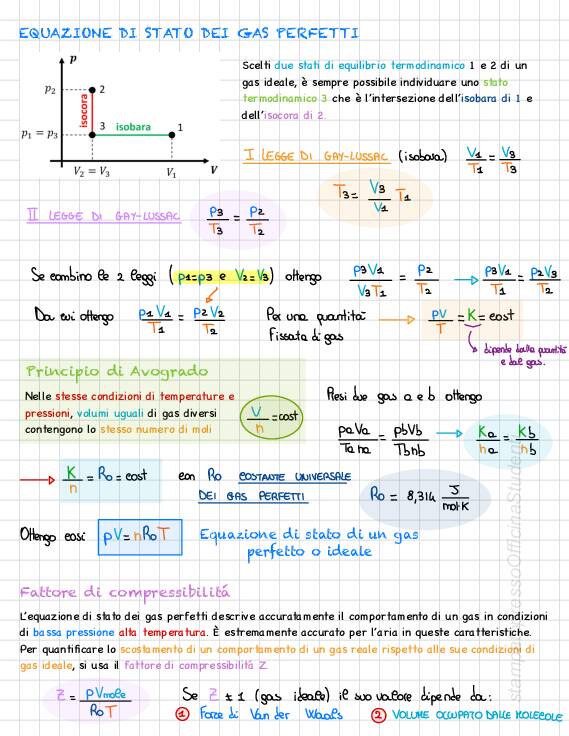 EQUAZIONE DI STATO DEI GAS PERFETTI
p
p₂
2
isocora
isobara
p₁ = p₃
3
1
V₂ = V₃
V₁
V
Scelti due stati di equilibrio termodinamico 1 e 2 di un
gas ideale, è sempre possibile individuare uno stato
termodinamico 3 che è l'intersezione dell'isobara di 1 e
dell'isocora di 2.
I LEGGE DI GAY-LUSSAC (isobara) V₁/T₁ = V₃/T₃
T₃ = V₃/V₁ T₁
II LEGGE DI GAY-LUSSAC p₃/T₃ = p₂/T₂
Se combino le 2 leggi (p₁=p₃ e V₂=V₃) ottengo p₃V₁/V₃T₁ = p₂/T₂ → p₃V₁/T₁ = p₂V₃/T₂
Da cui ottengo p₁V₁/T₁ = p₂V₂/T₂ Per una quantità → pV/T = K = cost
Fissata di gas
dipende dalla quantità
e dal gas.
Principio di Avogrado
Nelle stesse condizioni di temperature e
pressioni, volumi uguali di gas diversi
contengono lo stesso numero di moli
V/n = cost
Presi due gas a e b ottengo
paVa/Tana = pbVb/Tbnb → Ka/na = Kb/nb
→ K/n = R₀ = cost con R₀ COSTANTE UNIVERSALE
DEI GAS PERFETTI
R₀ = 8,314 J/mol·K
Ottengo così pV = nR₀T Equazione di stato di un gas
perfetto o ideale
Fattore di compressibilitá
L'equazione di stato dei gas perfetti descrive accuratamente il comportamento di un gas in condizioni
di bassa pressione alta temperatura. È estremamente accurato per l'aria in queste caratteristiche.
Per quantificare lo scostamento di un comportamento di un gas reale rispetto alle sue condizioni di
gas ideale, si usa il fattore di compressibilitá Z.
Z = pVmole/R₀T Se Z ≠ 1 (gas ideale) il suo valore dipende da:
1 Forze di Van der Waals 2 VOLUME OCCUPATO DALLE MOLECOLE